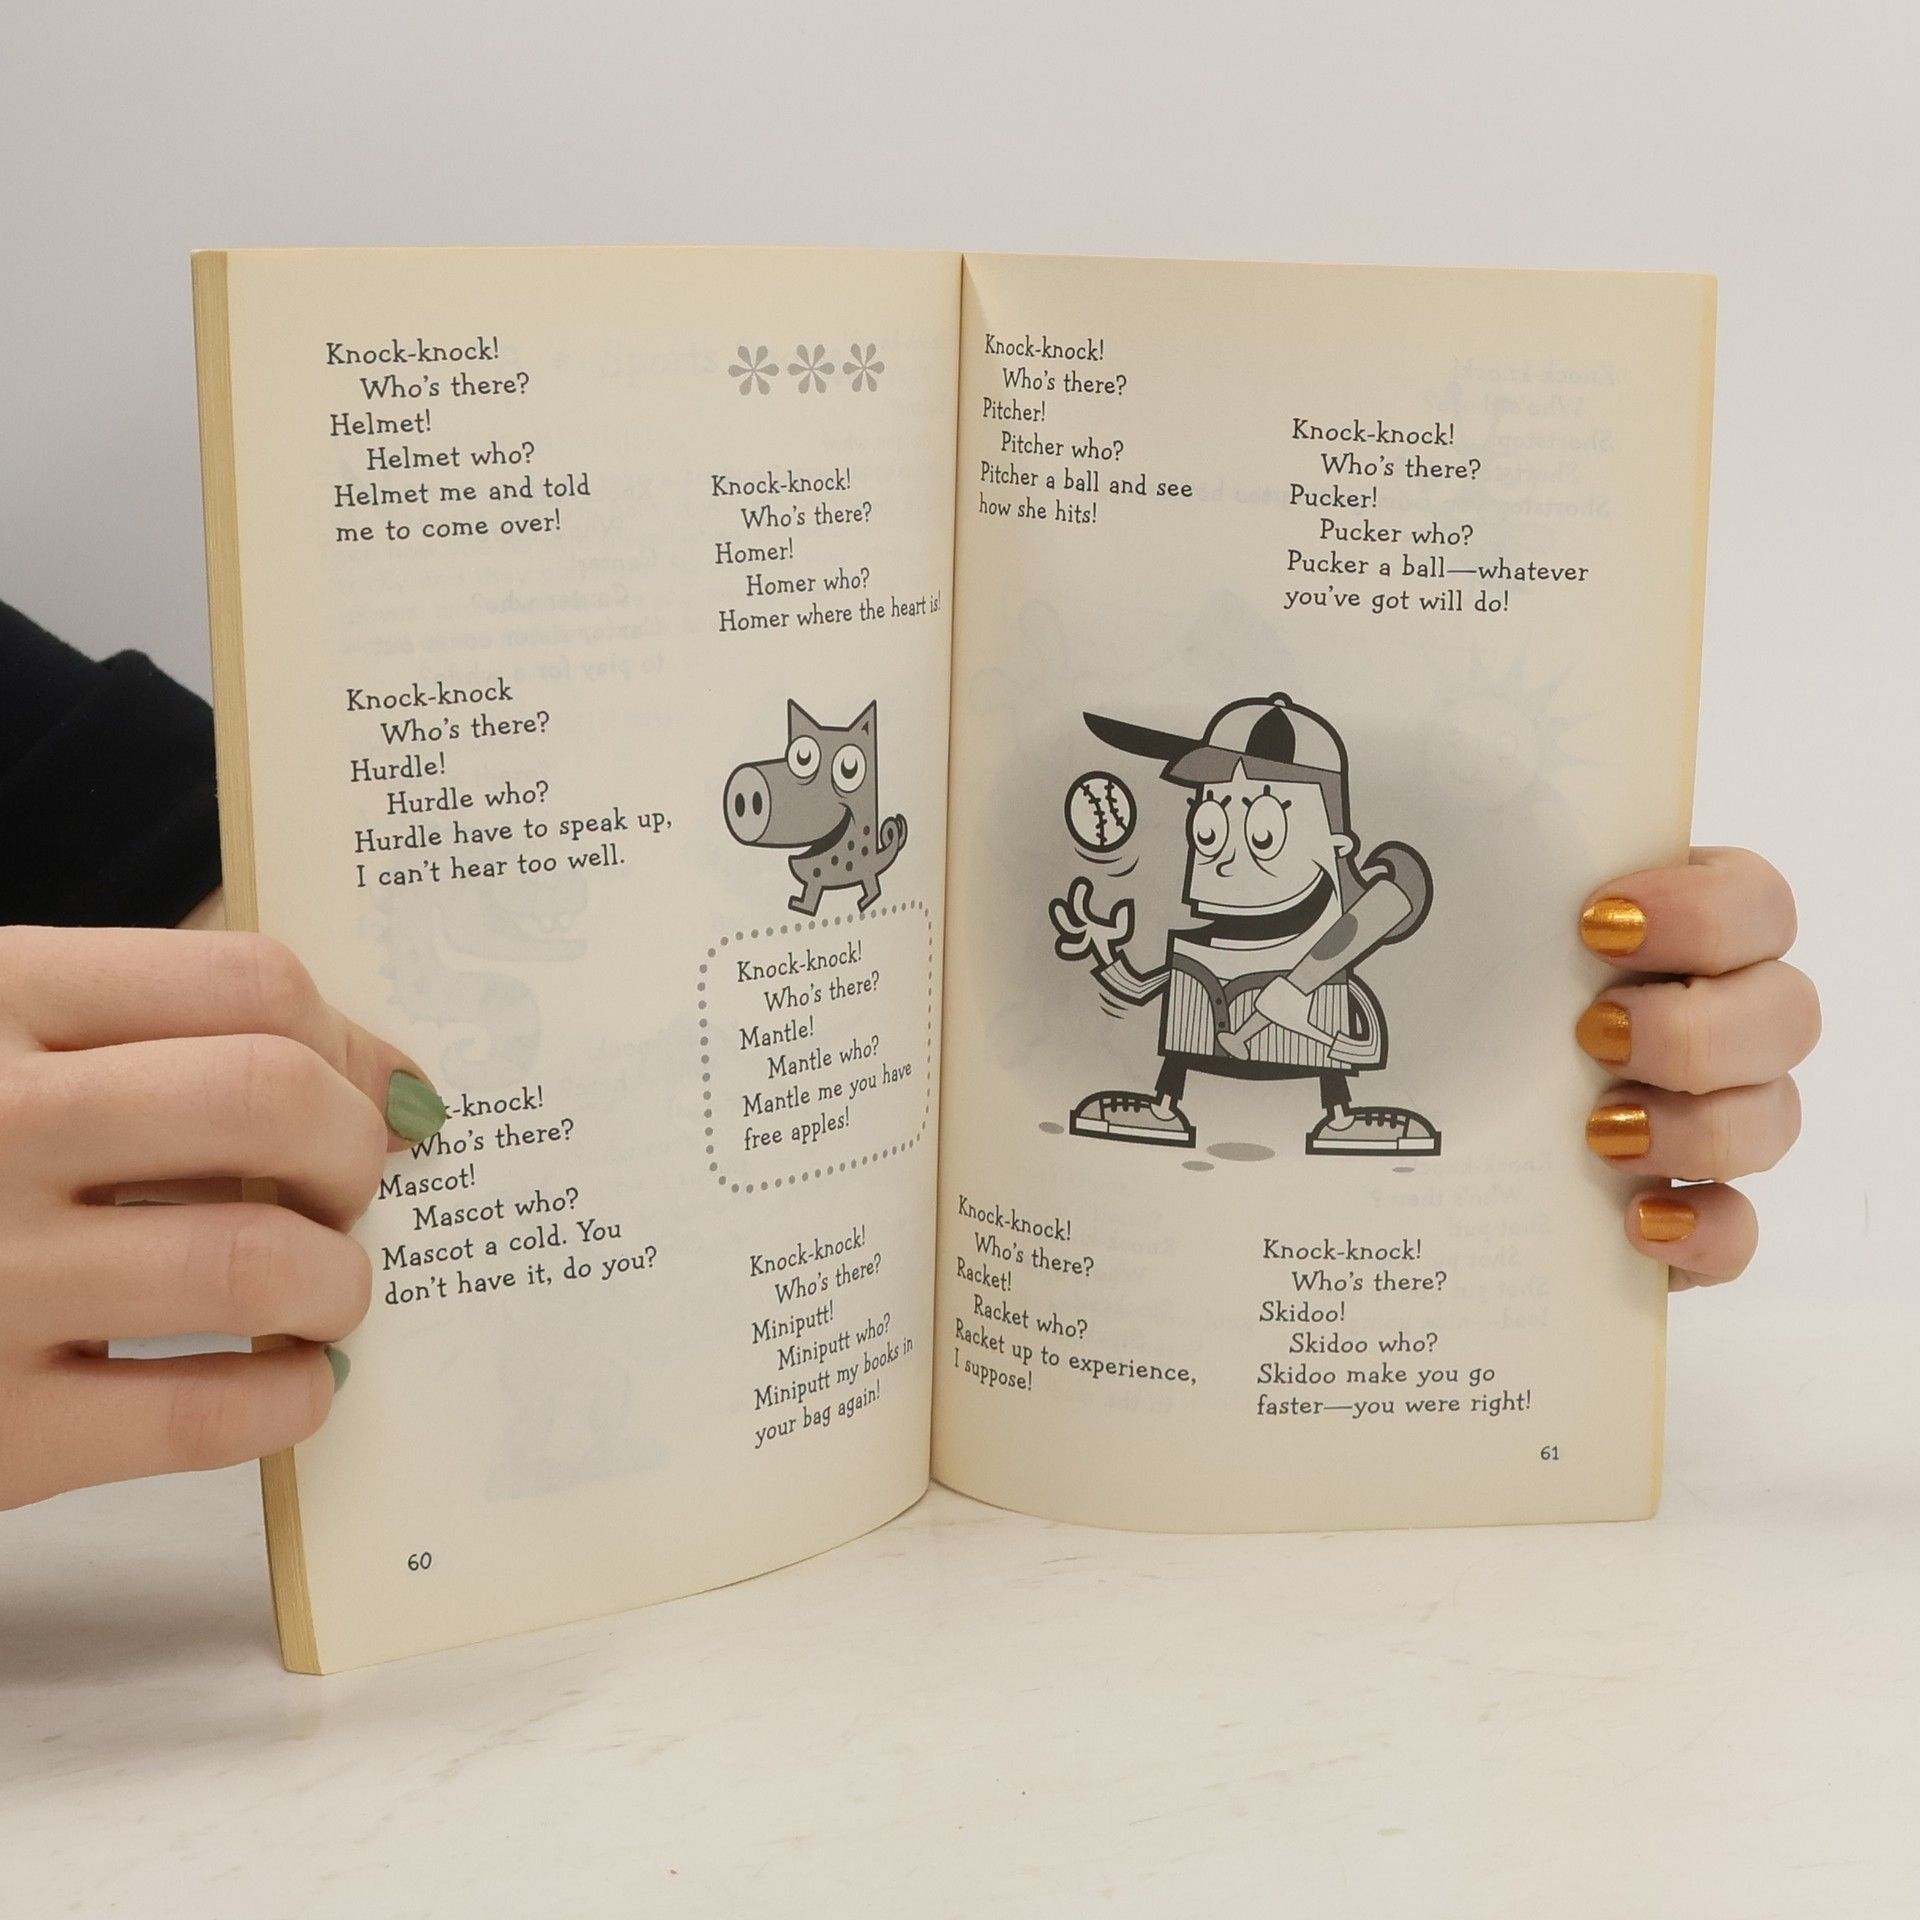 Knock-knock!
Who's there?
Helmet!
Helmet who?
Helmet me and told
me to come over!
Knock-knock
Who's there?
Hurdle!
Hurdle who?
Hurdle have to speak up,
I can't hear too well.
-knock!
Who's there?
Mascot!
Mascot who?
Mascot a cold. You
don't have it, do you?
Knock-knock!
Who's there?
Homer!
Homer who?
Homer where the heart is!
Knock-knock!
Who's there?
Mantle!
Mantle who?
Mantle me you have
free apples!
Knock-knock!
Who's there?
Miniputt!
Miniputt who?
Miniputt my books in
your bag again!
60
Knock-knock!
Who's there?
Pitcher!
Pitcher who?
Pitcher a ball and see
how she hits!
Knock-knock!
Who's there?
Racket!
Racket who?
Racket up to experience,
I suppose!
Knock-knock!
Who's there?
Pucker!
Pucker who?
Pucker a ball—whatever
you've got will do!
Knock-knock!
Who's there?
Skidoo!
Skidoo who?
Skidoo make you go
faster—you were right!
61